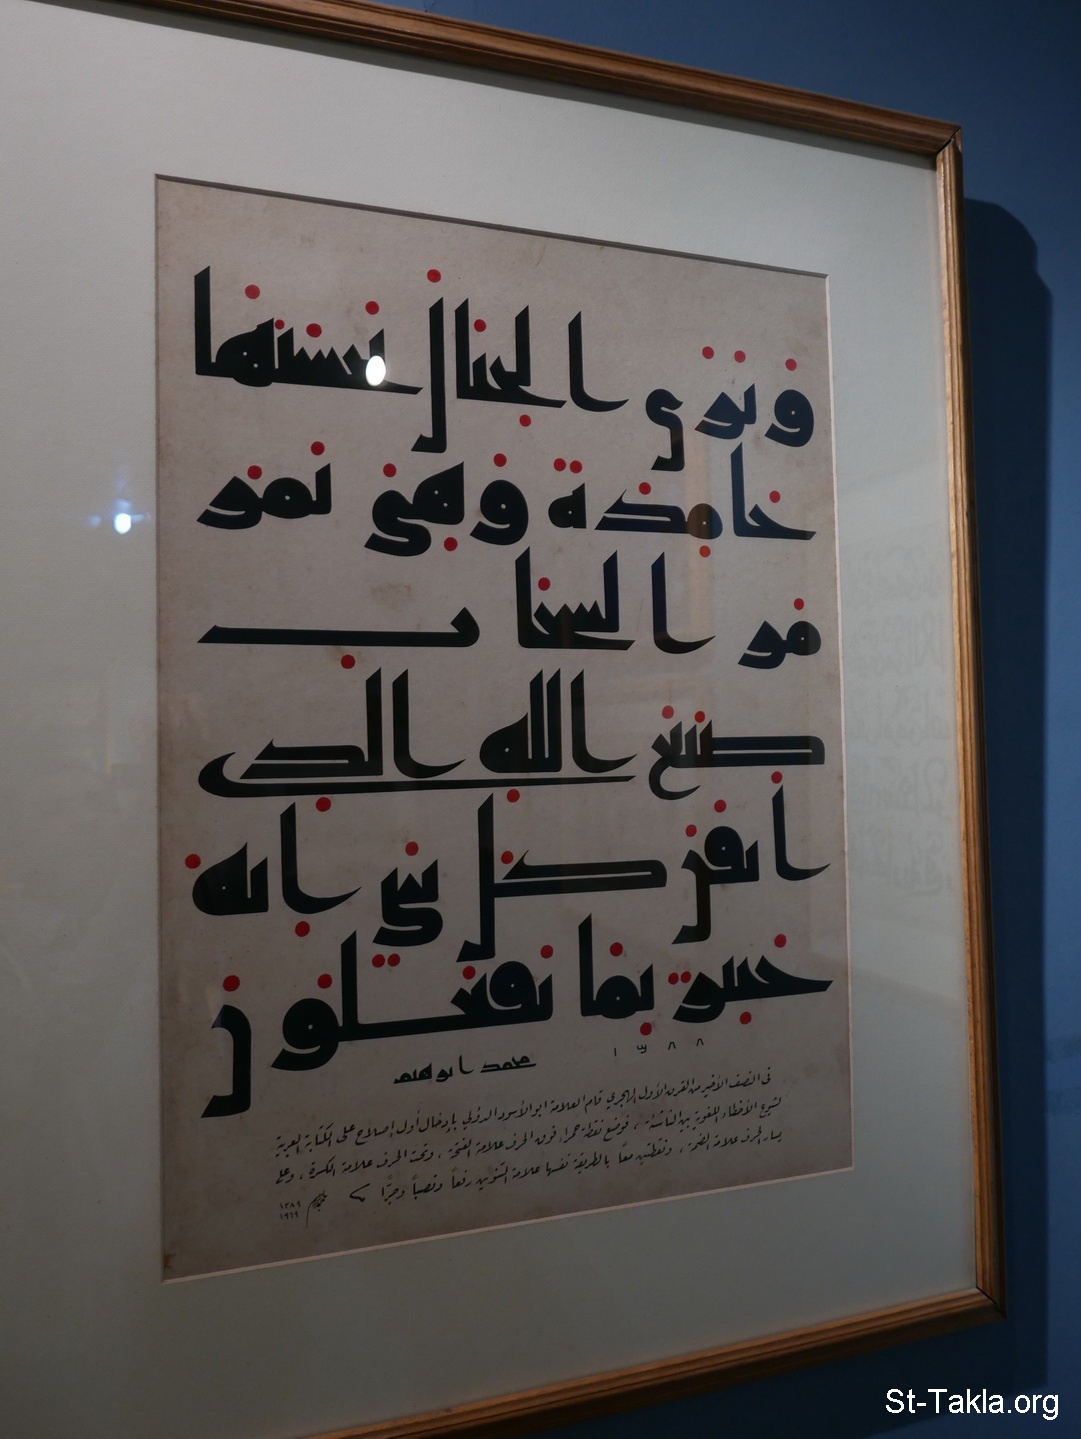 وترى الجبال تحسبها
جامدة وهي تمر
مر السحاب
صنع الله الذي
أتقن كل شيء إنه
خبير بما تفعلون
١٣٨٨
محمد ابرهيم
في النصف الأخير من القرن الأول الهجري قام العلامة ابو الأسود الدؤلي بإدخال أول إصلاح على الكتابة العربية
لشيوع الأخطاء اللغوية بين الناشئة ، فوضع نقطة حمراء فوق الحرف علامة الفتحة ، وتحت الحرف علامة الكسرة ، وعلى
يسار الحرف علامة الضمة ، ونقطتين معًا بالطريقة نفسها علامة التنوين رفعاً ونصباً وجرًّا
١٣٨٩
١٩٦٩
St-Takla.org